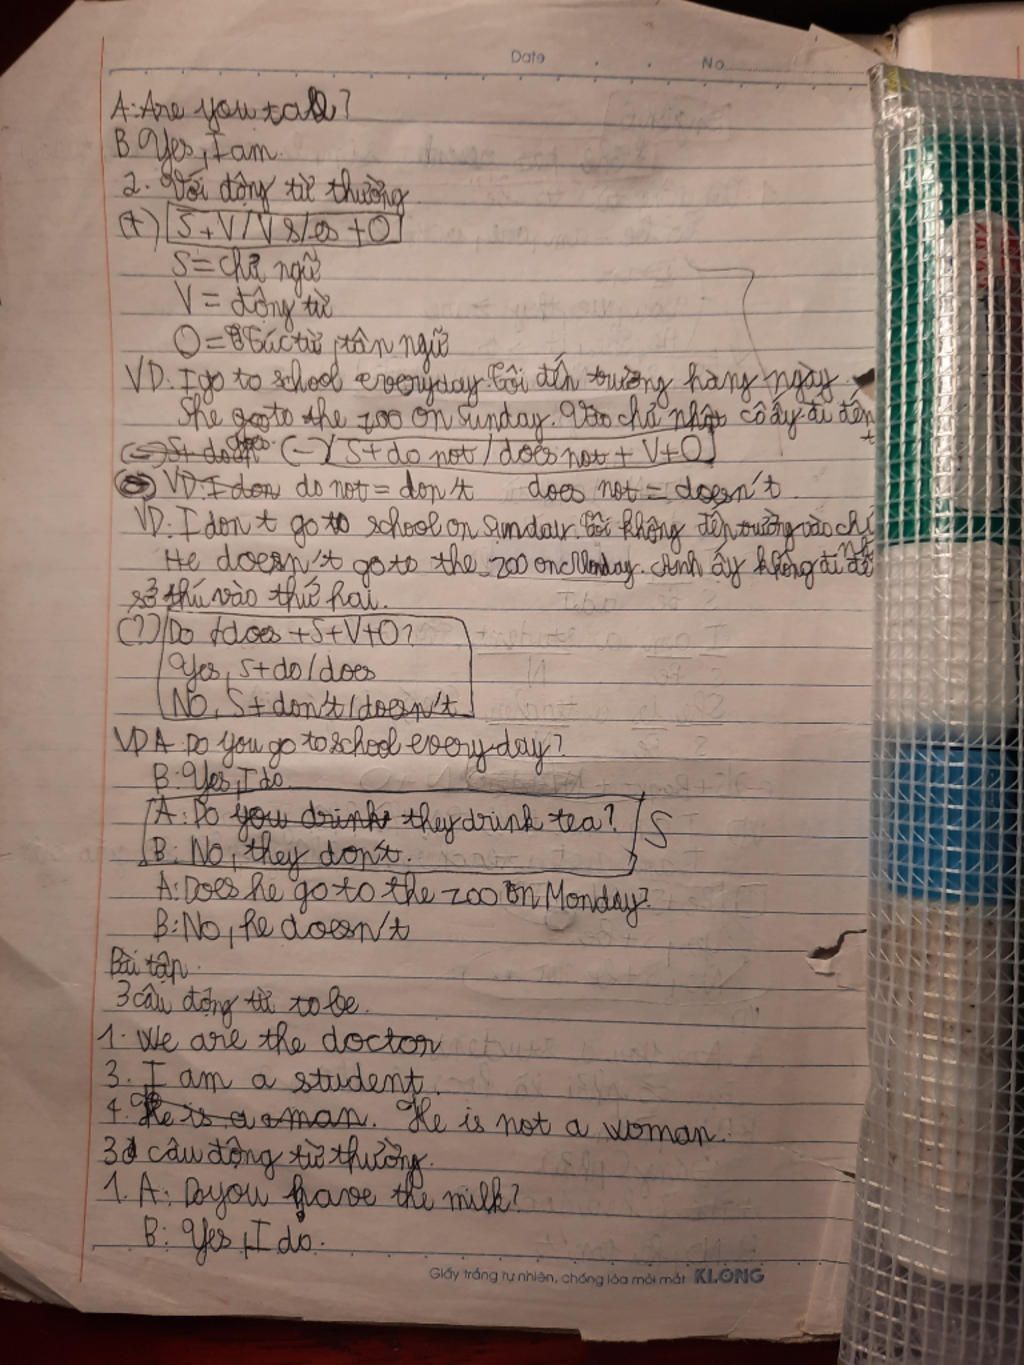 Date No
A: Are you tall?
B Yes, I am.
2. Với động từ thường
(+) S+V/Vs/es+O
S = chủ ngữ
V = động từ
O = tân ngữ
VD: I go to school everyday. Tôi đến trường hàng ngày
She go to the zoo on Sunday. Vào chủ nhật cô ấy đi đến
(-) S+ do not/does not + V+O
VD: I don do not = don't does not = doesn't
VD: I don't go to school on Sunday. Tôi không đến trường vào chủ
He doesn't go to the zoo on Monday. Anh ấy không đi đến
sở thú vào thứ hai.
(?) Do /does +S+V+O?
Yes, S+do/does
No, S+don't/doesn't
VD A: Do you go to school every day?
B: Yes, I do.
A: Do you drink they drink tea? S
B: No, they don't.
A: Does he go to the zoo on Monday?
B: No, he doesn't
Bài tập
3 câu động từ to be.
1. We are the doctor
3. I am a student.
4. He is a man. He is not a woman.
3 câu động từ thường.
1. A: Do you have the milk?
B: Yes, I do.
Giấy trắng tự nhiên, chống lóa mỏi mắt KLONG